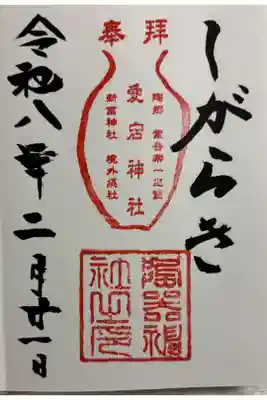 奉拝
しがらき
陶都 紫香楽一之宮
愛宕神社
新宮神社 境外摂社
陶器神
社之印
令和八年二月廿一日